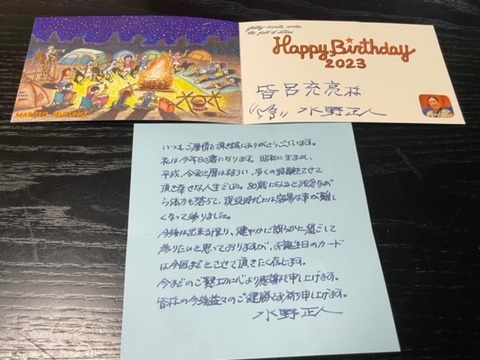 Happy Birthday
2023
水野正人
いつもご厚情を頂き誠にありがとうございます。
私は今年80歳になります。昭和に生まれ、
平成、令和と暦は移ろい、多くの経験をさせて
頂き幸せな人生でした。80歳になると残念なが
ら体力も落ちて、現役時代には容易な事が難し
くなって参りました。
今後は出来る限り、健やかに朗らかに過ごして
参りたいと思っておりますが、お誕生日のカード
は今回までとさせて頂きたく存じます。
今までのご賛助に心より感謝を申し上げます。
皆様の今後益々のご健勝をお祈り申し上げます。
水野正人